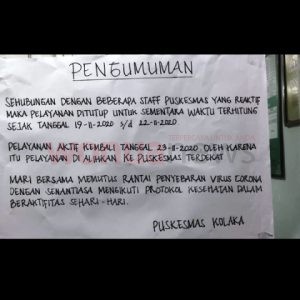 PENGUMUMAN
SEHUBUNGAN DENGAN BEBERAPA STAFF PUSKESMAS YANG REAKTIF
MAKA PELAYANAN DITUTUP UNTUK SEMENTARA WAKTU TERHITUNG
SEJAK TANGGAL 19-11-2020 s/d 22-11-2020.
PELAYANAN AKTIF KEMBALI TANGGAL 23-11-2020 OLEH KARENA
ITU PELAYANAN DI ALIHKAN KE PUSKESMAS TERDEKAT
MARI BERSAMA MEMUTUS RANTAI PENYEBARAN VIRUS CORONA
DENGAN SENANTIASA MENGIKUTI PROTOKOL KESEHATAN DALAM
BERAKTIFITAS SEHARI-HARI.
PUSKESMAS KOLAKA